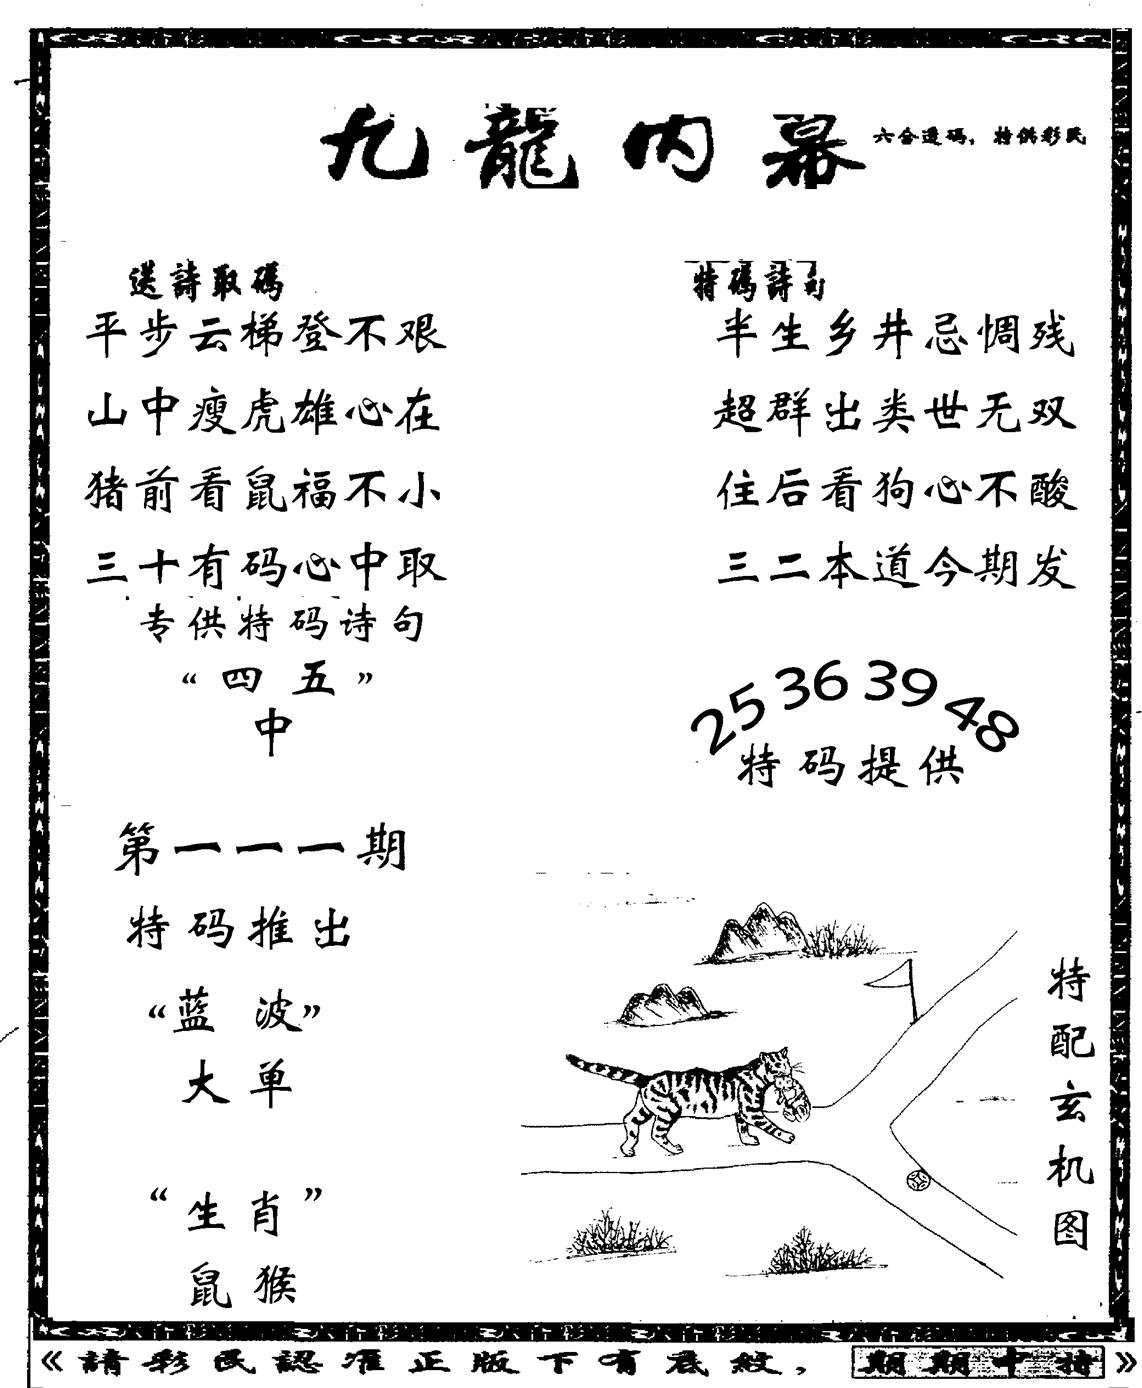 九龍内幕
六合透碼，特供彩民
送詩取碼
平步云梯登不艰
山中瘦虎雄心在
猪前看鼠福不小
三十有码心中取
专供特码诗句
“四五”
中
特碼詩句
半生乡井忌惆残
超群出类世无双
住后看狗心不酸
三二本道今期发
25 36 39 48
特码提供
第一一一期
特码推出
“蓝波”
大单
“生肖”
鼠猴
特配玄机图
《請彩民認准正版下有底紋，期期中特》